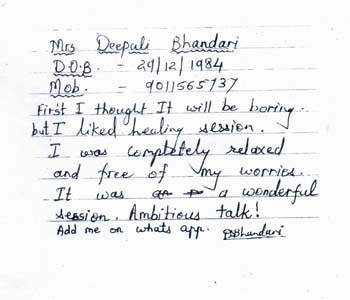 Mrs Deepali Bhandari
D.O.B. - 29/12/1984
Mob. - 9011565737
First I thought It will be boring..
but I liked healing session.
I was completely relaxed
and free of my worries.
It was a wonderful
session. Ambitious talk!
Add me on whats app. DSBhandari